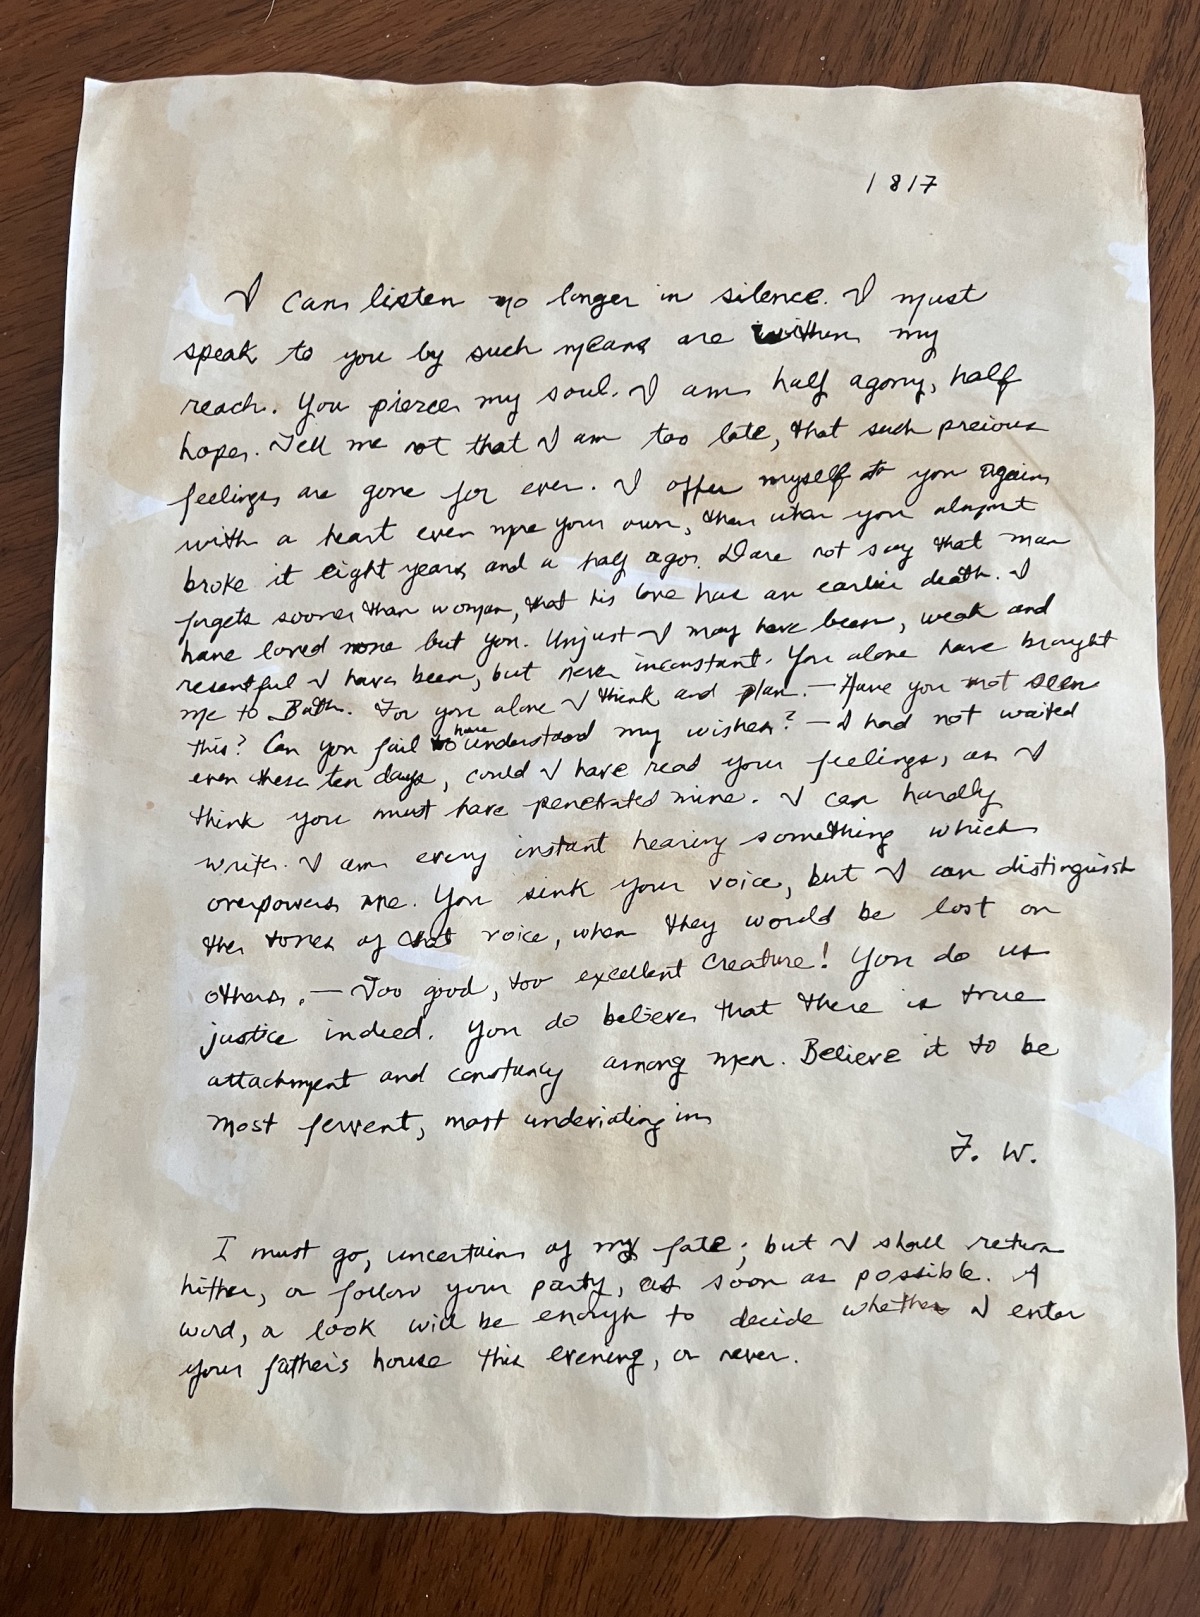 1817
I can listen no longer in silence. I must
speak to you by such means are within my
reach. You pierce my soul. I am half agony, half
hope. Tell me not that I am too late, that such precious
feelings are gone for ever. I offer myself to you again
with a heart even more your own, than when you almost
broke it eight years and a half ago. Dare not say that man
forgets sooner than woman, that his love has an earlier death. I
have loved none but you. Unjust I may have been, weak and
resentful I have been, but never inconstant. You alone have brought
me to Bath. For you alone I think and plan. — Have you not seen
this? Can you fail to have understood my wishes? — I had not waited
even these ten days, could I have read your feelings, as I
think you must have penetrated mine. I can hardly
write. I am every instant hearing something which
overpowers me. You sink your voice, but I can distinguish
the tones of that voice, when they would be lost on
others. — Too good, too excellent creature! You do us
justice indeed. You do believe that there is true
attachment and constancy among men. Believe it to be
most fervent, most undeviating in
F. W.
I must go, uncertain of my fate; but I shall return
hither, or follow your party, as soon as possible. A
word, a look will be enough to decide whether I enter
your father's house this evening, or never.